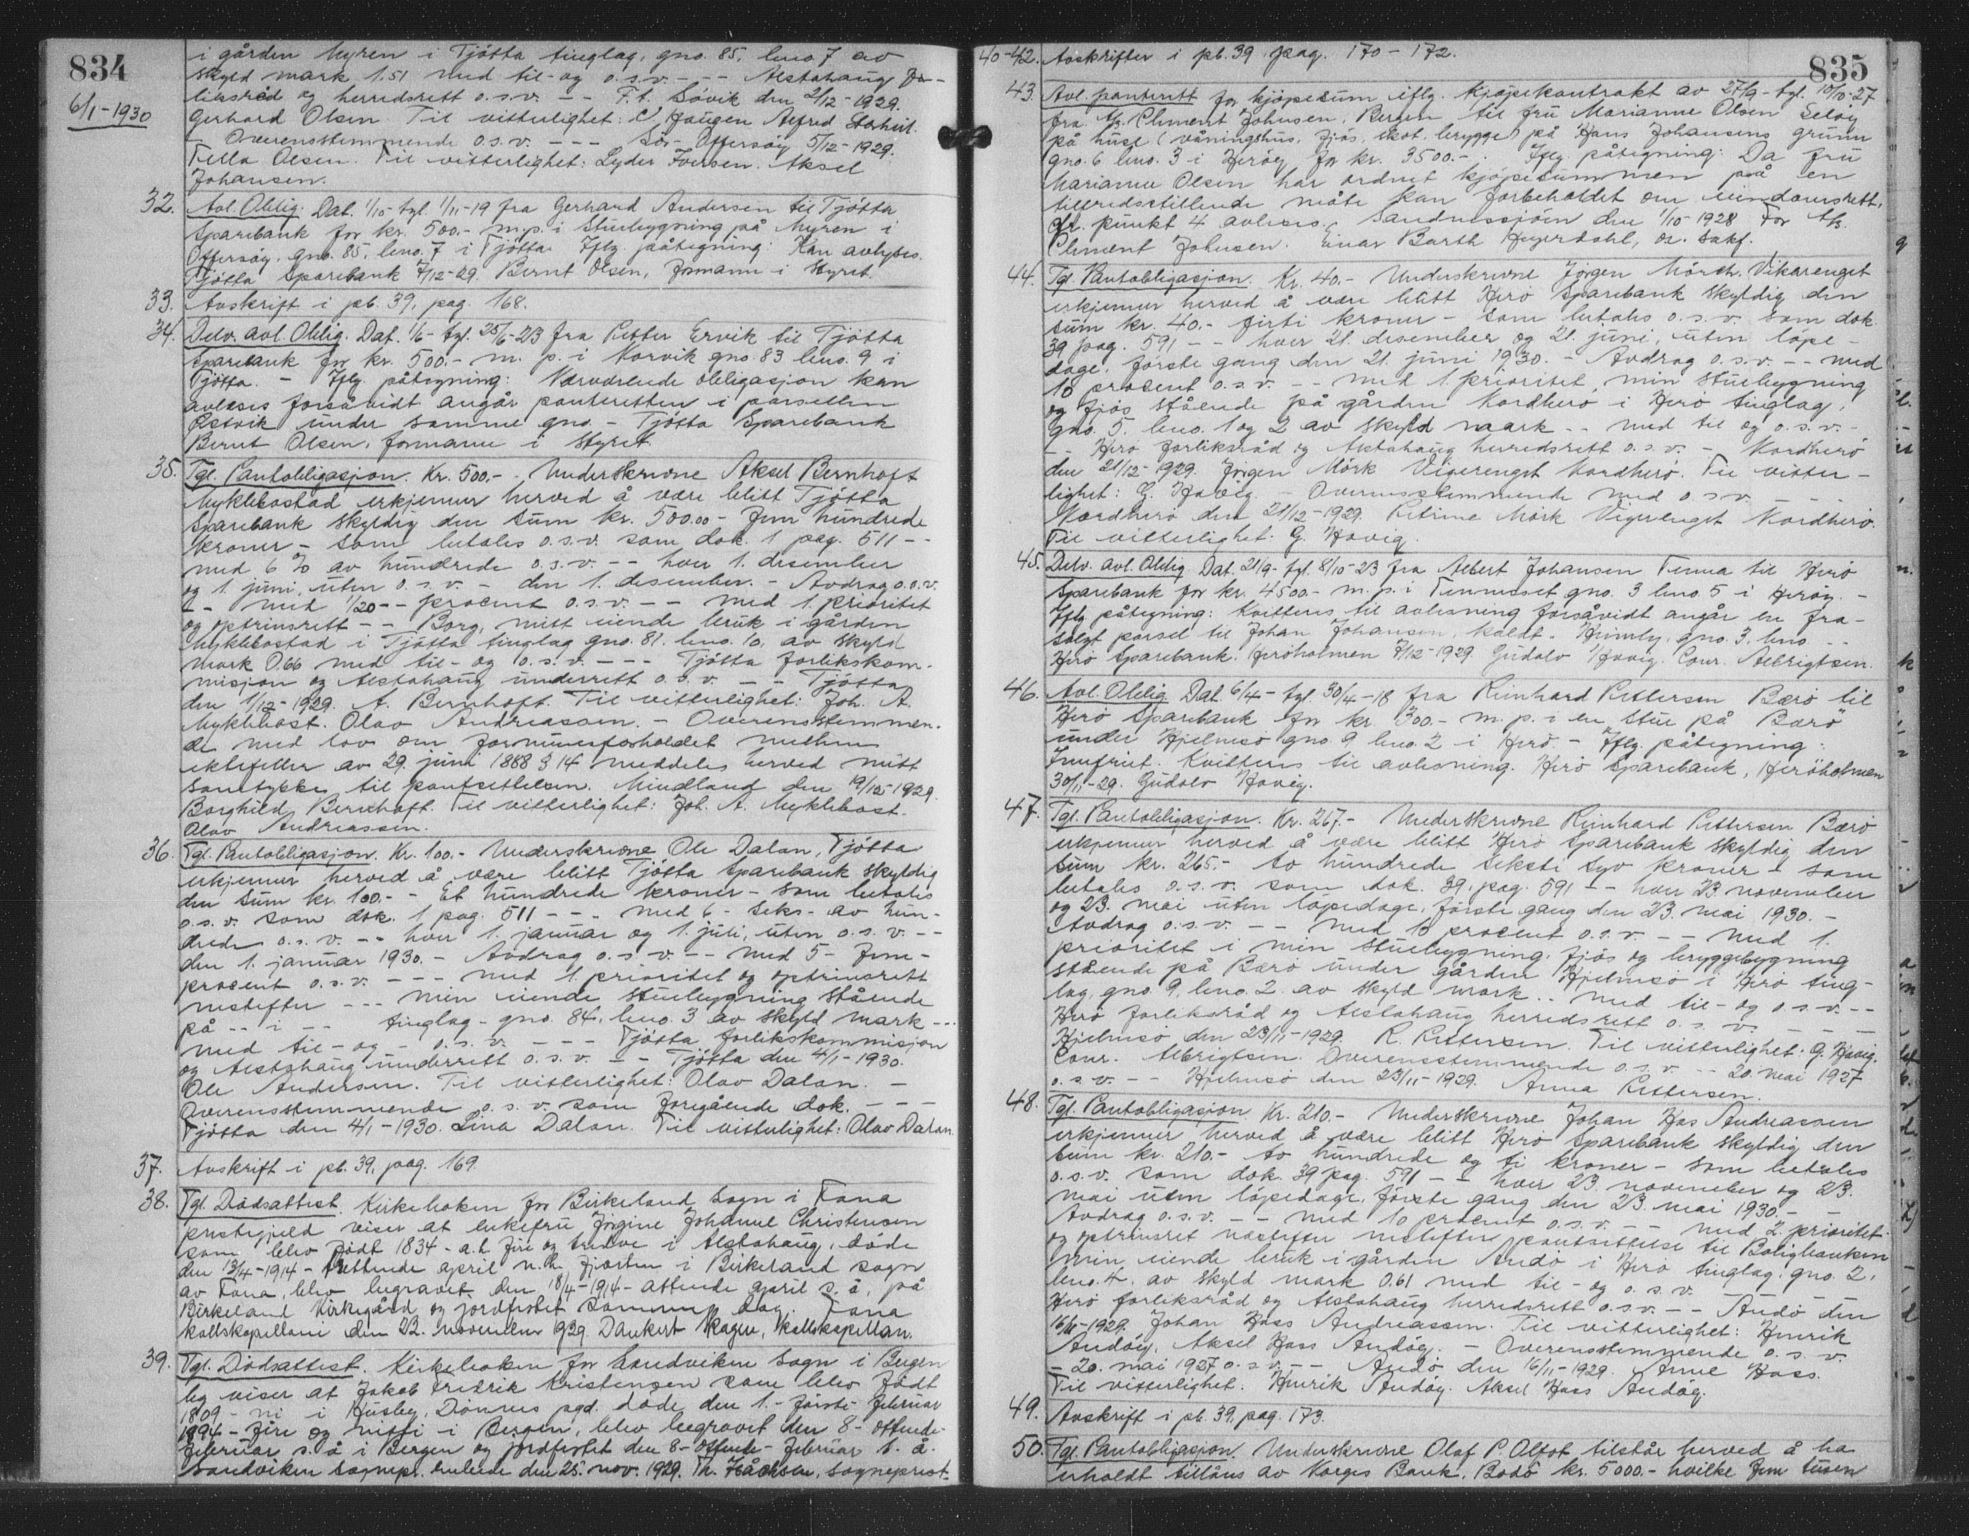 834
6/1-1930
i gården Myren i Tjøtta tinglag, gno. 85, bno. 7 av
skyld mark 1.51 med til- og o.s.v. - - - Alstahaug for-
liksråd og herredsrett o.s.v. - - P.t. Søvik den 2/12-1929.
Gerhard Olsen. Til vitterlighet: Alfred
- Overensstemmende o.s.v. - - - Sør-Offersøy 5/12-1929.
Tella Olsen. Til vitterlighet: Lyder Iversen. Aksel
Johansen.
32. Avl. Oblig. Dat. 1/10- tgl. 1/11-19 fra Gerhard Andersen til Tjøtta
Sparebank for kr. 500.- m.p. i Stuebygning på Myren i
Offersøy, gno. 85, bno. 7 i Tjøtta. Iflg. påtegning: Kan avlyses.
Tjøtta Sparebank 7/12-29. Bernt Olsen, formann i Styret.
33. Avskrift i pb. 39, pag. 168.
34. Delv. avl. Oblig. Dat. 1/6- tgl. 25/6-23 fra Petter Ervik til Tjøtta
Sparebank for kr. 500.- m. p. i Norvik gno. 83 bno. 9 i
Tjøtta. - Iflg. påtegning: Nærværende obligasjon kan
avleses forsåvidt angår panteretten i parsellen
Østvik under samme gno. - Tjøtta Sparebank
Bernt Olsen, formann i Styret.
35. Tgl. Pantobligasjon. Kr. 500.- . Underskrevne Aksel Bernhoft
Myklebostad erkjenner herved å være blitt Tjøtta
Sparebank skyldig den sum kr. 500.00 - fem hundrede
kroner - som betales o.s.v. som dok. 1 pag. 511 - -
med 6 % av hundrede o.s.v. - - hver 1. desember
og 1. juni, uten o. s. v. - den 1. desember. - Avdrag o.s.v.
- - med 1/20 - - procent o.s.v. - - med 1 prioritet
og optrinsrett - - Borg, mitt eiende bruk i gården
Myklebostad i Tjøtta tinglag gno. 81. bno. 10, av skyld
mark 0.66 med til- og o.s.v. - - - Tjøtta forlikskom-
misjon og Alstahaug underrett o.s.v. - - Tjøtta
den 1/12-1929. A. Bernhoft. Til vitterlighet: Joh. A.
Myklebost. Olav Andreassen. - Overensstemmen-
de med lov om formuesforholdet mellem
ektefeller av 29. juni 1888 § 14 meddeles herved mitt
samtykke til pantsettelsen. Mindland den 19/12-1929.
Borghild Bernhoft. Til vitterlighet: Joh. A. Myklebost.
Olav Andreassen.
36. Tgl. Pantobligasjon. Kr. 100.- Underskrevne Ole Dalan, Tjøtta
erkjenner herved å være blitt Tjøtta Sparebank skyldig
den sum kr. 100.- - Et hundrede kroner - som betales
o.s.v. som dok. 1 pag. 511 - - - med 6 - seks - av hun-
drede o.s.v. - - hver 1. januar og 1. juli, uten o.s.v. - -
den 1. januar 1930. - Avdrag o.s.v. - - med 5 - fem -
procent o.s.v. - - - med 1 prioritet og optrinsrett
nestefter - - - min eiende stuebygning stående
på - - i - - tinglag - gno. 84, bno. 3 av skyld mark - - -
med til - og - o.s.v. - - - Tjøtta forlikskommisjon
og Alstahaug underrett o.s.v. - - Tjøtta den 4/1-1930.
Ole Andersen. Til vitterlighet: Olav Dalan. -
Overensstemmende o.s.v. som foregående dok. - - -
Tjøtta den 4/1-1930. Lina Dalan. Til vitterlighet: Olav Dalan.
37. Avskrift i pb. 39, pag. 169.
38. Tgl. Dødsattest. Kirkeboken for Birkeland Sogn i Fana
prestegjeld viser at enkefru Jørgine Johanne Christensen
som blev født 1834 - a.t. fire og tredve i Alstahaug, døde
den 13/4-1914 - trettende april n.h. fjorten i Birkeland sogn
av Fana, blev begravet den 18/4-1914 - attende april s. å. på
Birkeland Kirkegård og jordfestet samme dag. Fana
kallskapellani den 22. november 1929. Dankert Skagen, Kallskapellan.
39. Tgl. Dødsattest. Kirkeboken for Sandviken Sogn i Bergen
by viser at Jakob Fredrik Kristensen som blev født
1809 - ni i Husby, Dønnes pgd. døde den 1. - første - februar
1894 - fire og nitti - i Bergen, blev begravet den 8 - ottende -
februar s. å i Bergen og jordfestet den 8 - ottende - februar s. å.
Sandviken sognepr. embede den 25. nov. 1929. Th. , sogneprest.
835
40-42. Avskrifter i pb. 39 pag. 170 - 172.
43. Avl. panterett for kjøpesum iflg. kjøpekontrakt av 27/9- tgl. 10/10-27
fra A/s. Clement Johnsen, Bergen til fru Marianne Olsen Seløy
på huse (våningshus, fjøs, skot. brygge) på Hans Johansens grunn
gno. 6 bno. 3 i Herøy for kr. 3500.- . Iflg. påtegning: Da fru
Marianne Olsen har ordnet kjøpesummen på en
tilfredsstillende måte kan forbeholdet om eiendomsrett,
cfr. punkt 4 avleses. Sandnessjøen den 1/10 1928 For A/s.
Clement Johnsen. Einar Barth Heyerdahl, o.r. sakf.
44. Tgl. Pantobligasjon. Kr. 40.- Underskrevne Jørgen Mörch, Vikarenget
erkjenner herved å være blitt Herø Sparebank skyldig den
sum kr. 40.- firti kroner - som betales o.s.v. som dok
39 pag. 591 - - hver 21. desember og 21. juni, uten løpe-
dage, første gang den 21. juni 1930. - Avdrag o.s.v. - - med
10 procent o.s.v. - - med 1. prioritet, min stuebygning
og fjøs stående på gården Nordherø i Herø tinglag,
gno. 5, bno. 1 og 2 av skyld mark - - med til og o.s.v. -
- Herø forliksråd og Alstahaug herredsrett o.s.v. - Nordherø
den 21/12-1929. Jørgen Mörk Vigerenget Nordherø. Til vitter-
lighet: G. Havig. - Overensstemmende med o.s.v. - -
Nordherø den 21/12-1929. Petrine Mörk Vigerenget Nordherø.
Til vitterlighet: G. Havig.
45. Delv. avl. Oblig. Dat. 21/9- tgl. 8/10-23 fra Albert Johansen Tenna til Herø
Sparebank for kr. 4500.- m.p. i Tenneset gno. 3 bno 5 i Herøy. -
Iflg. påtegning: Kvitteres til avlesning forsåvidt angår en fra-
solgt parsel til Johan Johansen, kaldt - Heimly, gno. 3, bno - -
Herø Sparebank. Herøholmen 7/12-1929. Gudolv Havig. Conr. Albrigtsen.
46. Avl. Oblig. Dat. 6/4- tgl. 30/4-18 fra Reinhard Pettersen Bærø til
Herø Sparebank for kr. 300.- m.p. i en stue på Bærø
under Hjelmsø gno. 9 bno. 2 i Herø. - Iflg. påtegning:
Innfriet. Kvitteres til avlesning. Herø Sparebank, Herøholmen
30/11-29. Gudolv Havig.
47. Tgl. Pantobligasjon. Kr. 267.- Underskrevne Reinhard Pettersen Bærø
erkjenner herved å være blitt Herø Sparebank skyldig den
sum kr. 265.- to hundrede seksti syv kroner - som
betales o.s.v. som dok. 39, pag. 591 - - hver 23 november
og 23. mai uten løpedage, første gang den 23. mai 1930. -
Avdrag o.s.v. - - med 10 procent o.s.v. - - med 1.
prioritet i min stuebygning, fjøs og bryggebygning
stående på Bærø under gården Hjelmsø i Herø ting-
lag, gno. 9, bno. 2. av skyld mark - - med til- og o.s.v. - -
Herø forliksråd og Alstahaug herredsrett o. s. v. - - -
Hjelmsø den 23/11-1929. R. Pettersen. Til vitterlighet: G. Havig.
Conr. Albrigtsen. Overensstemmende o.s.v. - - 20. mai 1927
o.s.v. - - Hjelmsø den 23/11-1929. Anna Pettersen.
48. Tgl. Pantobligasjon Kr. 210.- Underskrevne Johan Hass Andreassen
erkjenner herved å være blitt Herø Sparebank skyldig den
sum kr. 210.- to hundrede og ti kroner - som betales
o.s.v. som dok. 39 pag. 591 - - hver 23 november og 23.
mai uten løpedage, første gang den 23. mai 1930. - -
Avdrag o.s.v. - - med 10 procent o.s.v. - - med 2 prioritet
og optrinsret næstefter nestefter pantsettelse til Boligbanken
i min eiende bruk i gården Andø i Herø tinglag, gno. 2,
bno. 4, av skyld mark 0.61 med til - og o. s. v.
Herø forliksråd og Alstahaug herredsrett o.s.v. - - Andø den
16/11-1929. Johan Hass Andreassen. Til vitterlighet: Henrik
Andøy, Aksel Hass Andøy. - Overensstemmende o. s. v.
- 20. mai 1927 o.s.v. - - Andø den 16/11-1929. Anne Hass.
Til vitterlighet: Henrik Andøy. Aksel Hass Andøy.
49. Avskrift i pb. 39, pag. 173.
50. Tgl. Pantobligasjon. Underskrevne Olaf P. Olfot tilstår herved å ha
erholdt tillåns av Norges Bank, Bodø kr. 5000.- hvilke fem tusen